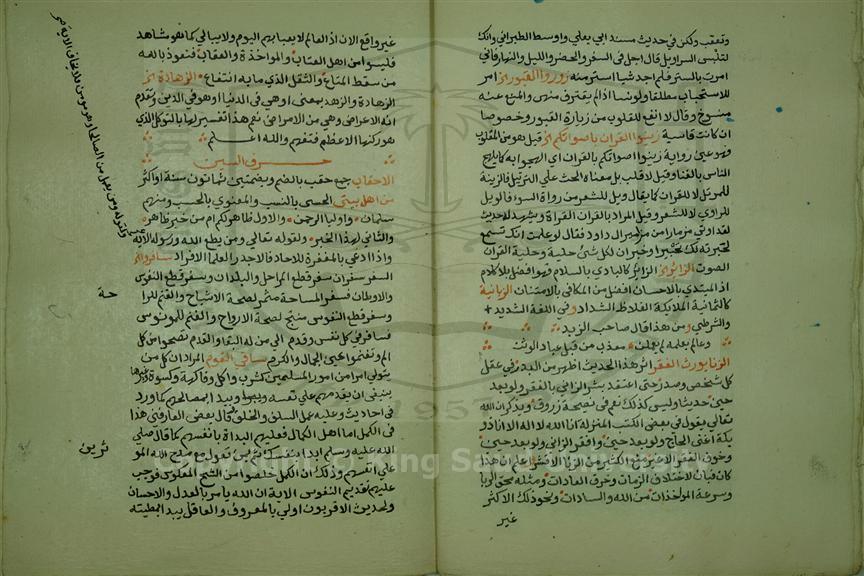 وتعقب ولكن في حديث مسند ابي يعلي واوسط الطبراني وانك
لتلبس السراويل قال اجل في السفر والحضر والليل والنهار فاني
امرت بالستر فلم اجد شيا استر منه زوروا القبور الخ امر
للاستحباب مطلقا ولو نسا اذا لم يقترف منهن والمنع عنه
منسوخ وقال لا انفع للقلوب من زيارة القبور وخصوصا
ان كانت قاسية زينوا القران باصواتكم الخ قيل هو من المقلوب
وهو عين رواية زينوا اصواتكم بالقران اي الهجوا به كما يلهج
الناس بالغنا وقيل لا قلب بل معناه الحث علي الترتيل فالزينة
للمرتل لا للقران كما يقال ويل للشعر من رواة السوء فالويل
للراوي لا للشعر وقيل المراد بالقران القراة ويشهد لحديث
لقد اوتي مزمارا من مزامير ال داود فقال لو علمت انك تسمع
لحبرته لك تحبيرا وخبر ان لكل شئ حلية وحلية القران
الصوت الزائر الخ الزائر كالبادي بالسلام فهو افضل بلا كلام
اذ المبتدي بالاحسان افضل من المكافي بالامتنان الزبانية
كالثمانية الملايكة الغلاظ الشداد وفي اللغة الشديد
والشرطي ومن هذا قال صاحب الزبد
وعالم بعلمه لم يعملن معذب من قبل عباد الوثن
الزنا يورث الفقر اثر هذا الحديث اظهر من البدر في عقل
كل شخص وصدر حتي اعتقد بشر الزاني بالفقر ولو بعد
حين حديثا وليس كذلك نعم في نصيحة زروق ويذكر ان الله
تعالي يقول في بعض الكتب المنزلة انا الله لا اله الا انا ذو
بكة اغني الحاج ولو بعد حين وافقر الزاني ولو بعد حين
وسرعة المواخذات من الله والسادات ونحو ذلك الاكثر
غير
غير واقع الان اذ العالم لا يعبا بهم اليوم ولا يبالي كما هو شاهد
فليسوا من اهل العتاب والمواخذة والعقاب فنعوذ بالله
من سقط المتاع والثقل الذي ما به انتفاع الزهادة الخ
الزهادة والزهد بمعني اوهي في الدنيا وهو في الدين وتقدم
انه الاعراض وهي من الامراض نعم هذا تفسير لها بالتوكل الذي
هو ركنها الاعظم فتفهم والله اعلم
حرف السين
الاحقاب جمع حقب بالضم وبضمتين ثمانون سنة او اكثر
من اهل بيتي الحسي بالنسب والمعنوي بالحسب ومنهم
سلمان واوليا الرحمن والاول طاهر وكم ام من خبر ظاهر
والثاني لهذا الخبر ولقوله تعالي ومن يطع الله ورسوله الاية
واذا ادعي بالمغفرة للاحاد فالاجدر العلما الافراد سافروا الخ
السفر سفران سفر قطع المراحل والبلدان وسفر قطع النفوس
والاوطان فسفر المساحة مثمر لصحة الاشباح والغنم للمرا
وسفر قطع النفوس منتج لصحة الارواح والغنم للمونوس
فسافر في كل نفس وقدم الي من له البقا والقدم تصحوا من كل
الم وتغنموا عين الجمال والكرم ساقي القوم المراد ان كل من
يتولي امرا من امور المسلمين كشرب واكل وفاكهة وكسوة وغيرها
ينبغي ان يقدمهم علي نفسه ويبدا بمصالحهم كما ورد
في احاديث وعليه عمل السلف والخلق قال بعض العارفين هذا
في الكمل اما اهل الكمال فعليهم البداة بانفسهم كما قال صلي
الله عليه وسلم ابدا بنفسك ثم بمن تعول مع مدح الله المو
علي انفسهم وذلك ان الكمل خلصوا من الشح المغلوس فوجب
عليهم تقديم النفوس الاية ان الله يامر بالعدل والاحسان
ولحديث الاقربون اولي بالمعروف والعاقل يبدا بمطيته
ثرين